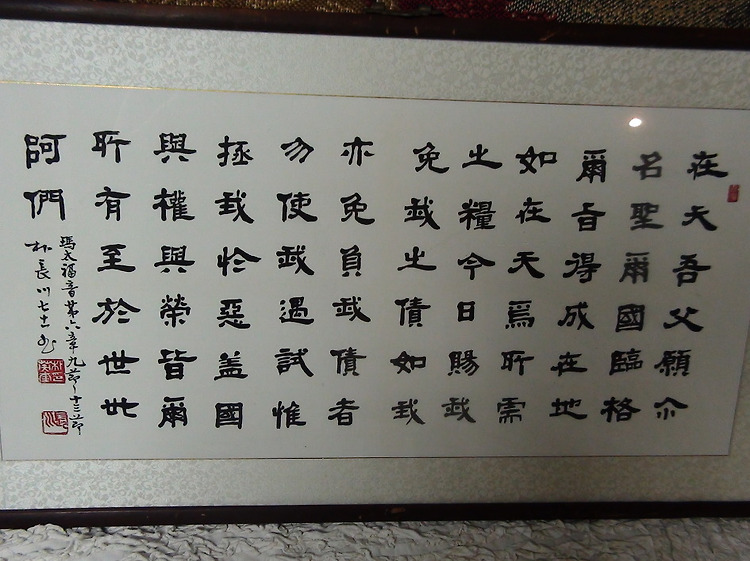 在天吾父願尒
名聖爾國臨格
爾旨得成在地
如在天焉所需
之糧今日賜我
免我之債如我
亦免負我債者
勿使我遇試惟
拯我於惡盖國
與權與榮皆爾
所有至於世世
阿們
瑪太福音第六章九節—十三節
長川七